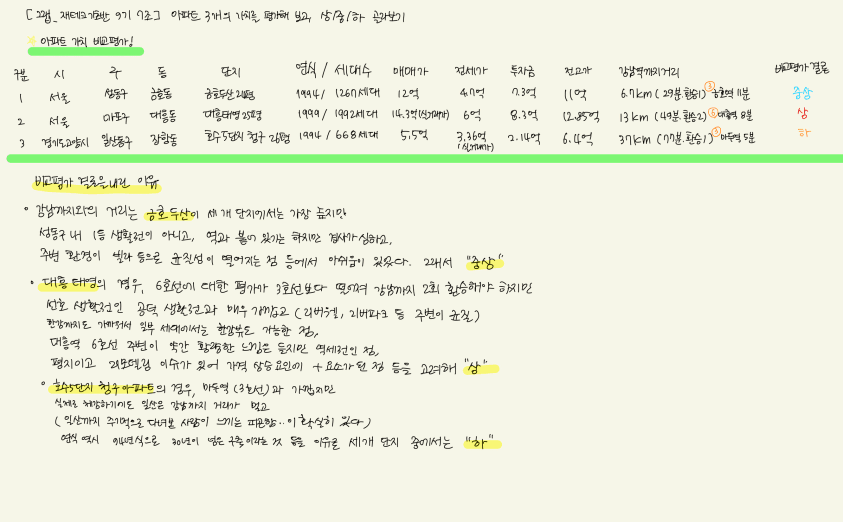 [그랩_재테크기초반 9기 7조] 아파트 3개의 가치를 평가해 보고 상/중/하 골라보기
* 아파트 가치 비교평가!
구분 시 구 동 단지 연식 / 세대수 매매가 전세가 투자금 전고가 강남역까지거리 비교평가 결론
1 서울 성동구 금호동 금호두산 24평 1994 / 1267세대 12억 4.7억 7.3억 11억 6.7km (29분.환승1) ③ 금호역 11분 중상
2 서울 마포구 대흥동 대흥태영 25평 1999 / 1992세대 14.3억(실거래가) 6억 8.3억 12.85억 13km (49분.환승2) ⑥ 대흥역 8분 상
3 경기도고양시 일산동구 장항동 호수5단지 청구 26평 1994 / 668세대 5.5억 3.36억 (실거래가) 2.14억 6.4억 37km (77분.환승1) ③ 마두역 5분 하
비교평가 결론을 내린 이유
• 강남까지와의 거리는 금호두산이 세 개 단지에서는 가장 높지만
성동구 내 1등 생활권이 아니고, 역과 붙어 있기는 하지만 경사가 심하고,
주변 환경이 빌라 등으로 균질성이 떨어지는 점 등에서 아쉬움이 있었다. 그래서 "중상"
• 대흥 태영의 경우, 6호선에 대한 평가가 3호선보다 떨어져 강남까지 2회 환승해야 하지만
선호 생활권인 공덕 생활권과 매우 가깝고 (리버웰, 리버파크 등 주변이 균질)
한강까지도 가까워서 일부 세대에서는 한강뷰도 가능한 점,
대흥역 6호선 주변이 약간 황량한 느낌은 들지만 역세권인 점,
평지이고 리모델링 이슈가 있어 가격 상승 요인에 + 요소가 된 점 등을 고려해 "상"
• 호수5단지 청구아파트의 경우, 마두역 (3호선)과 가깝지만
실제로 체감하기에도 일산은 강남까지 거리가 멀고
(일산까지 주기적으로 다녀본 사람이 느끼는 피곤함.. 이 확실히 있다)
연식 역시 94년식으로 30년이 넘은 구축이라는 것 등을 이유로 세 개 단지 중에서는 "하"